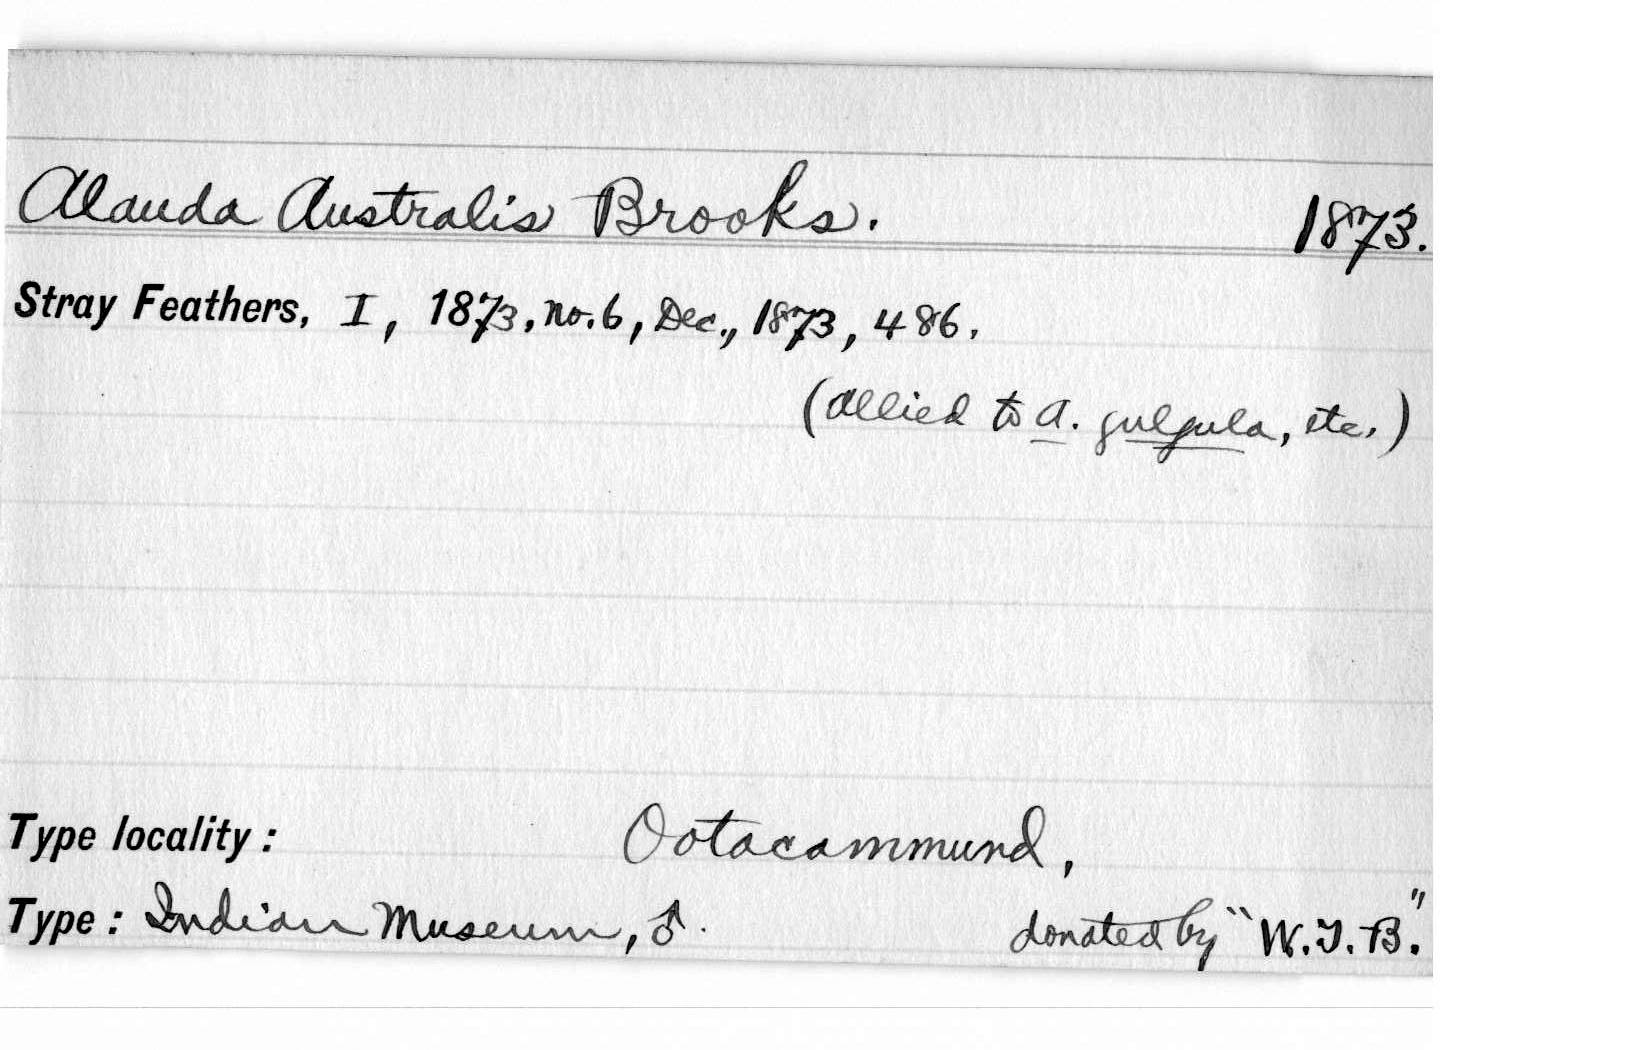 Alauda Australis Brooks. 1873.
Stray Feathers, I, 1873, no. 6, Dec., 1873, 486.
(Allied to A. gulgula, etc.)
Type locality: Ootacammund,
Type: Indian Museum, ♂. donated by "W.T.B."